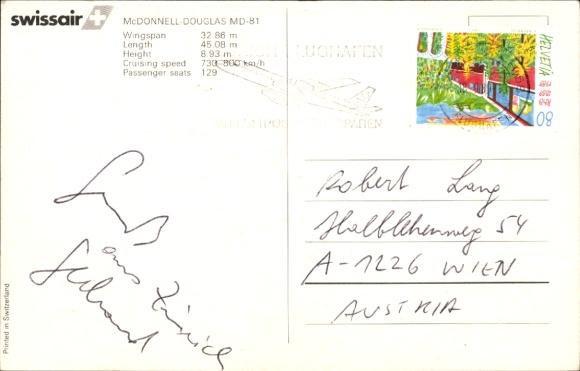 swissair
McDONNELL-DOUGLAS MD-81
Wingspan 32.86 m
Length 45.08 m
Height 8.93 m
Cruising speed 730-800 km/h
Passenger seats 129
FLUGHAFEN
HELVETIA
80
Robert Lang
Halblehenweg 54
A-1226 WIEN
AUSTRIA
Gruß
aus Zürich
Gebrand
Printed in Switzerland